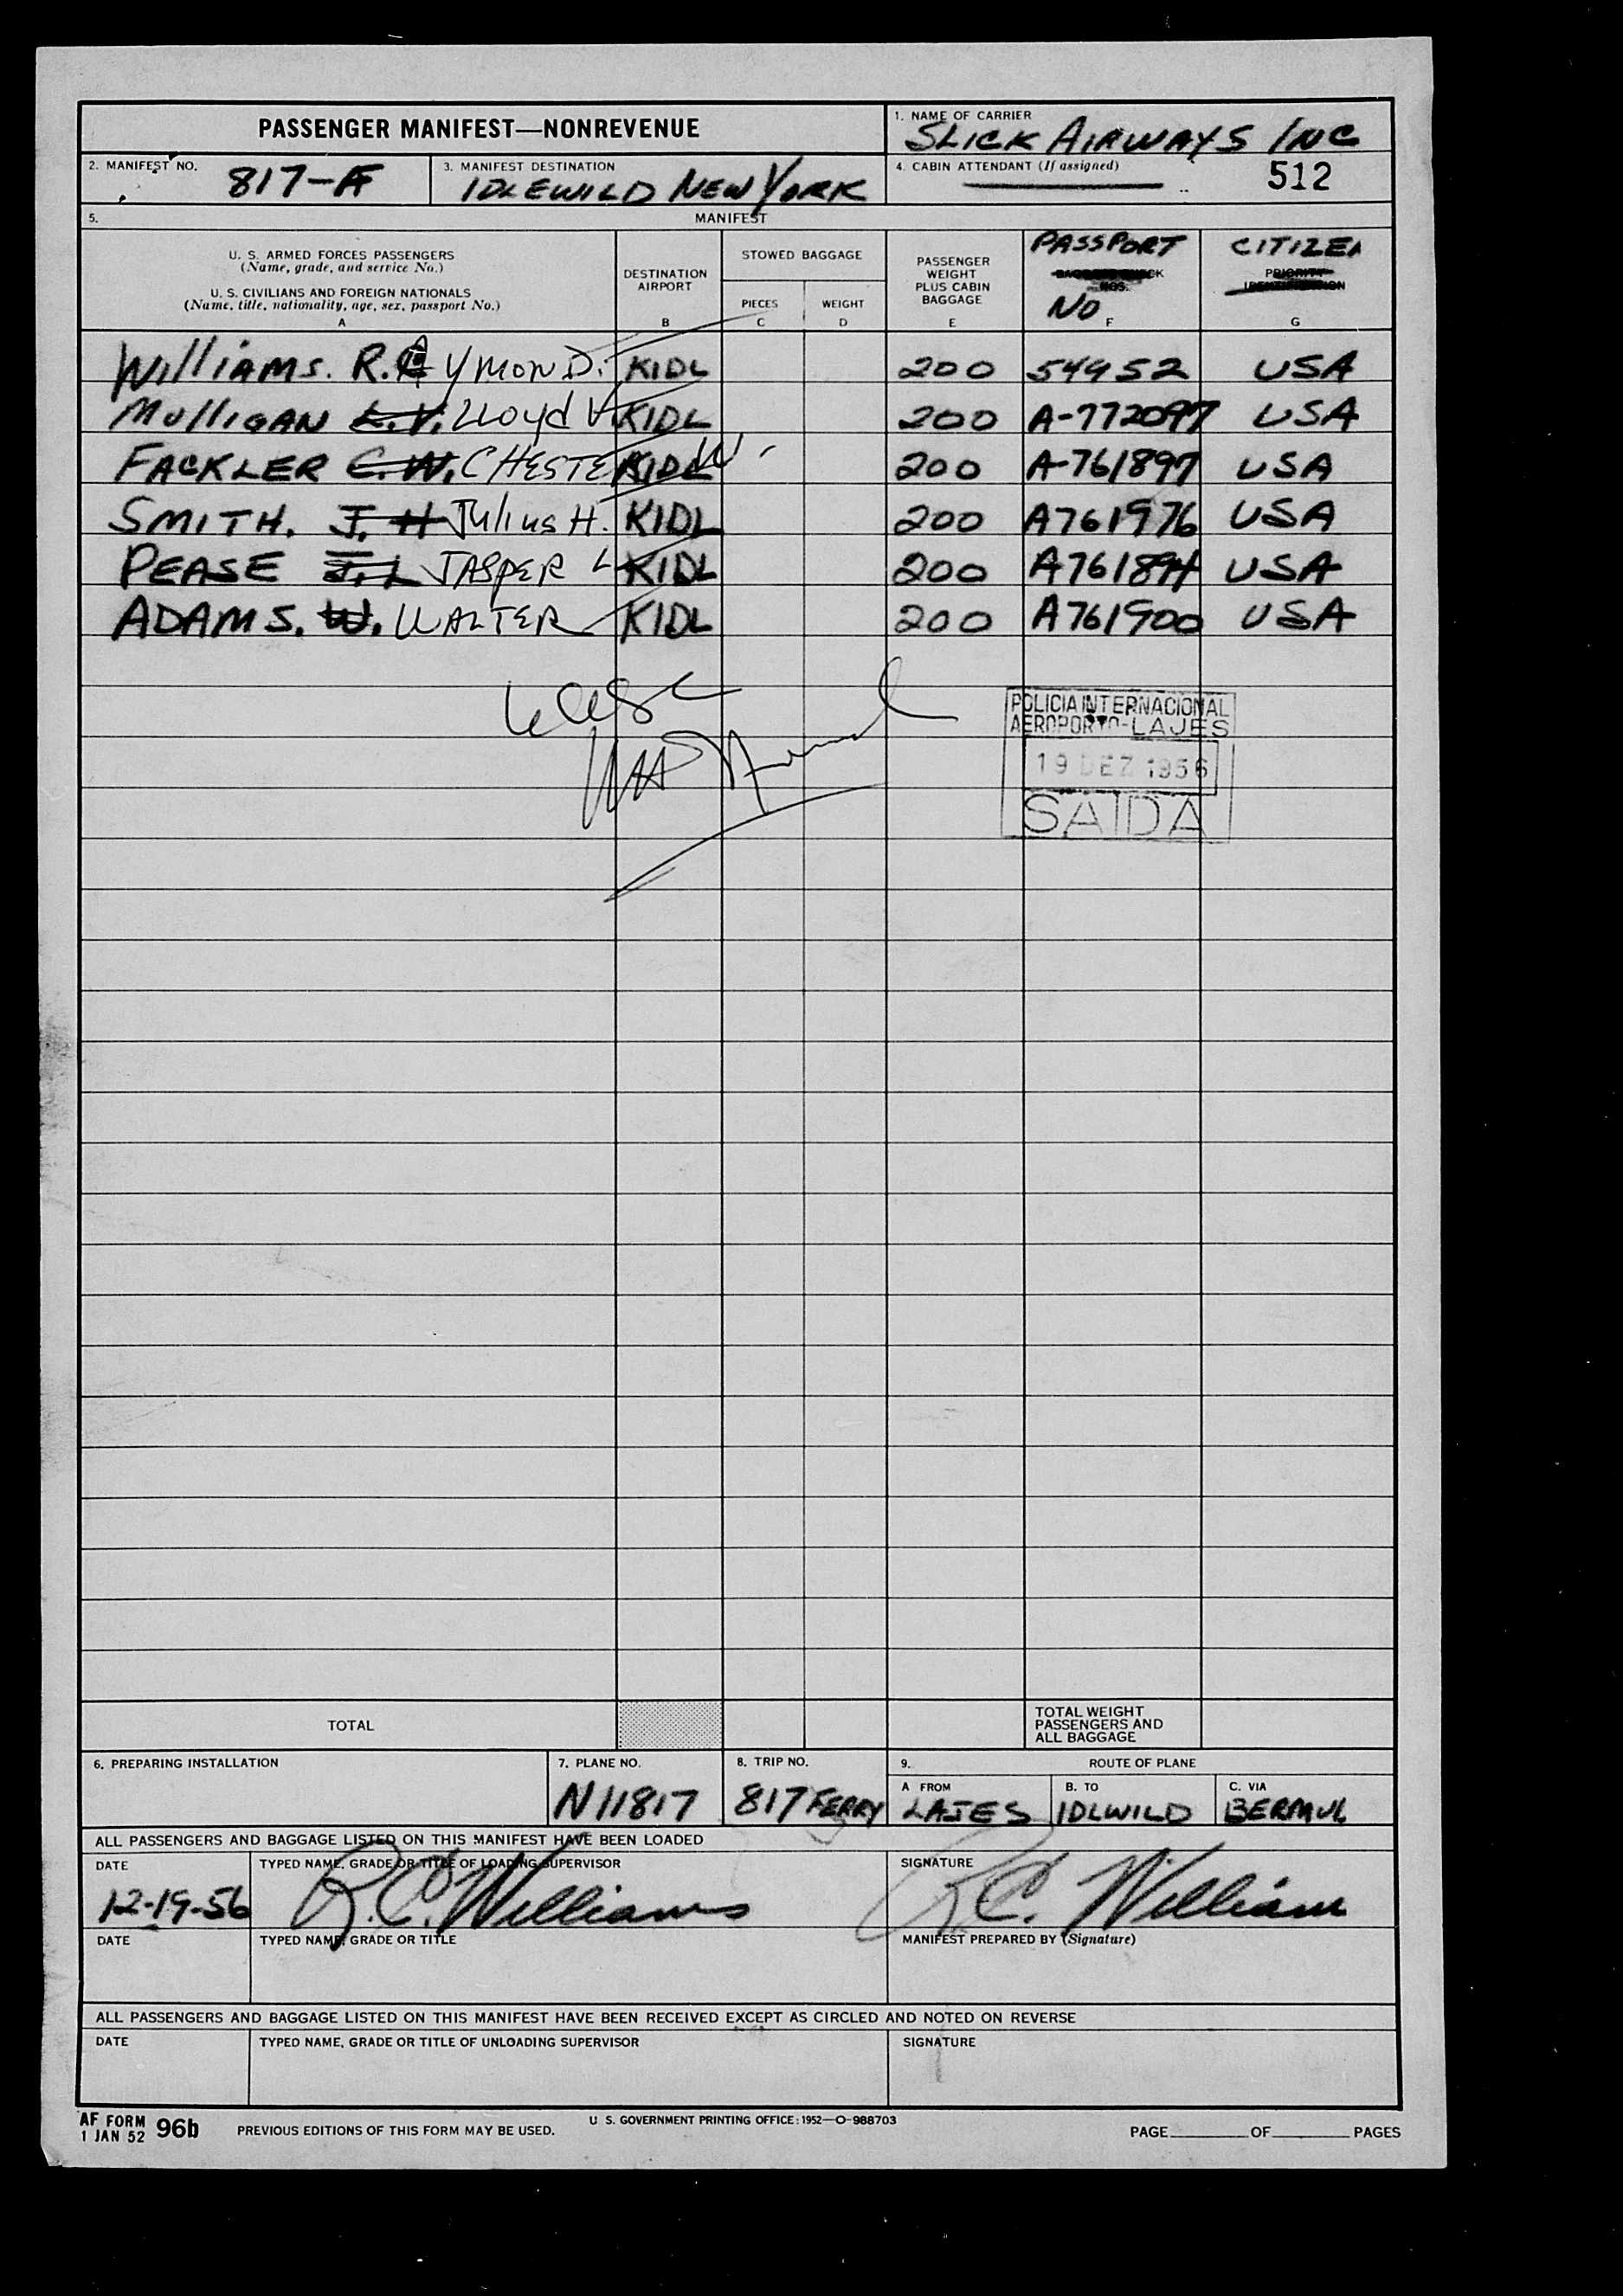 PASSENGER MANIFEST—NONREVENUE
1. NAME OF CARRIER
SLICK AIRWAYS INC
2. MANIFEST NO.
817-A
3. MANIFEST DESTINATION
IDLEWILD NEW YORK
4. CABIN ATTENDANT (If assigned)
512
5.
MANIFEST
U. S. ARMED FORCES PASSENGERS
(Name, grade, and service No.)
U. S. CIVILIANS AND FOREIGN NATIONALS
(Name, title, nationality, age, sex, passport No.)
A
DESTINATION
AIRPORT
B
STOWED BAGGAGE
PIECES
C
WEIGHT
D
PASSENGER
WEIGHT
PLUS CABIN
BAGGAGE
E
PASSPORT
NO
F
CITIZEN
PRIORITY
IDENTIFICATION
G
Williams. R. AYMOND. KIDL 200 54952 USA
Mulligan L.V. Lloyd V KIDL 200 A-772097 USA
FACKLER C.W. CHESTER W. KIDL 200 A-761897 USA
SMITH. J. H Julius H. KIDL 200 A761976 USA
PEASE J.L JASPER L KIDL 200 A761894 USA
ADAMS. W. WALTER KIDL 200 A761900 USA
POLICIA INTERNACIONAL
AEROPORTO-LAJES
19 DEZ 1956
SAIDA
TOTAL
TOTAL WEIGHT
PASSENGERS AND
ALL BAGGAGE
6. PREPARING INSTALLATION
7. PLANE NO.
N11817
8. TRIP NO.
817 FERRY
9. ROUTE OF PLANE
A FROM
LAJES
B. TO
IDLWILD
C. VIA
BERMUL
ALL PASSENGERS AND BAGGAGE LISTED ON THIS MANIFEST HAVE BEEN LOADED
DATE
12-19-56
TYPED NAME, GRADE OR TITLE OF LOADING SUPERVISOR
R.C. Williams
SIGNATURE
R.C. William
DATE
TYPED NAME, GRADE OR TITLE
MANIFEST PREPARED BY (Signature)
ALL PASSENGERS AND BAGGAGE LISTED ON THIS MANIFEST HAVE BEEN RECEIVED EXCEPT AS CIRCLED AND NOTED ON REVERSE
DATE
TYPED NAME, GRADE OR TITLE OF UNLOADING SUPERVISOR
SIGNATURE
AF FORM 96b
1 JAN 52
PREVIOUS EDITIONS OF THIS FORM MAY BE USED.
U S. GOVERNMENT PRINTING OFFICE: 1952—O-988703
PAGE OF PAGES